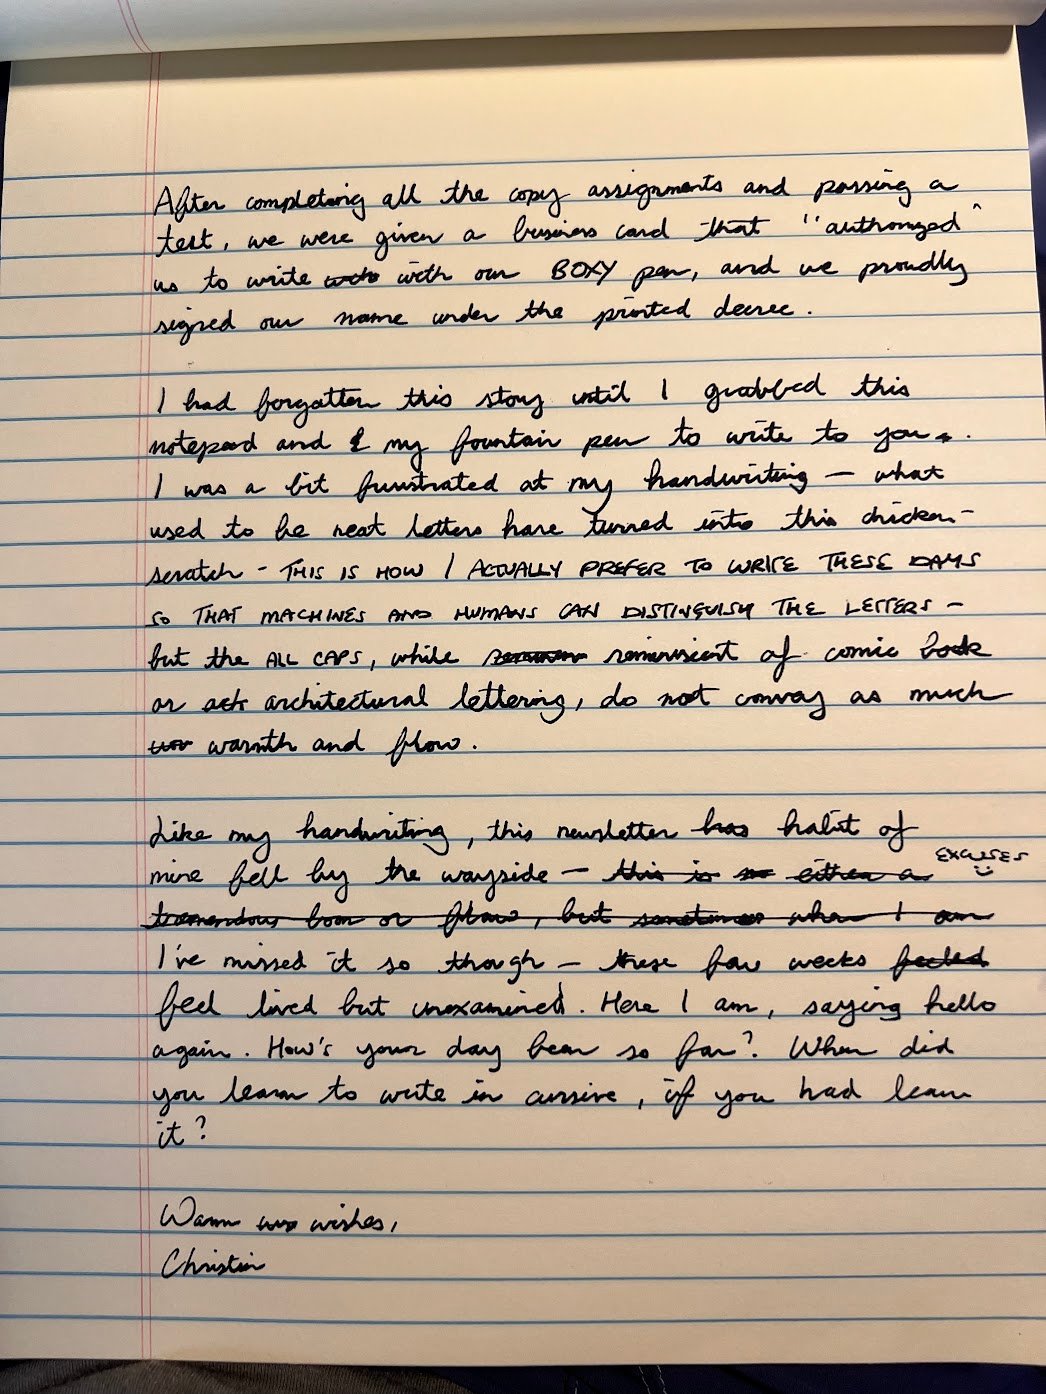 After completing all the copy assignments and passing a
test, we were given a business card that "authorized"
us to write with our BOXY pen, and we proudly
signed our name under the printed decree.
I had forgotten this story until I grabbed this
notepad and & my fountain pen to write to you.
I was a bit frustrated at my handwriting – what
used to be neat letters have turned into this chicken-
scratch - THIS IS HOW I ACTUALLY PREFER TO WRITE THESE DAYS
SO THAT MACHINES AND HUMANS CAN DISTINGUISH THE LETTERS –
but the ALL CAPS, while reminiscent of comic book
or architectural lettering, do not convey as much
warmth and flow.
Like my handwriting, this newsletter has habit of
EXCUSES
mine fell by the wayside – this is no either a
tremendous boon or flow, but sometimes when I am
I've missed it so though – these few weeks feeled
feel lived but unexamined. Here I am, saying hello
again. How's your day been so far? When did
you learn to write in cursive, if you had learn
it?
Warm wishes,
Christin